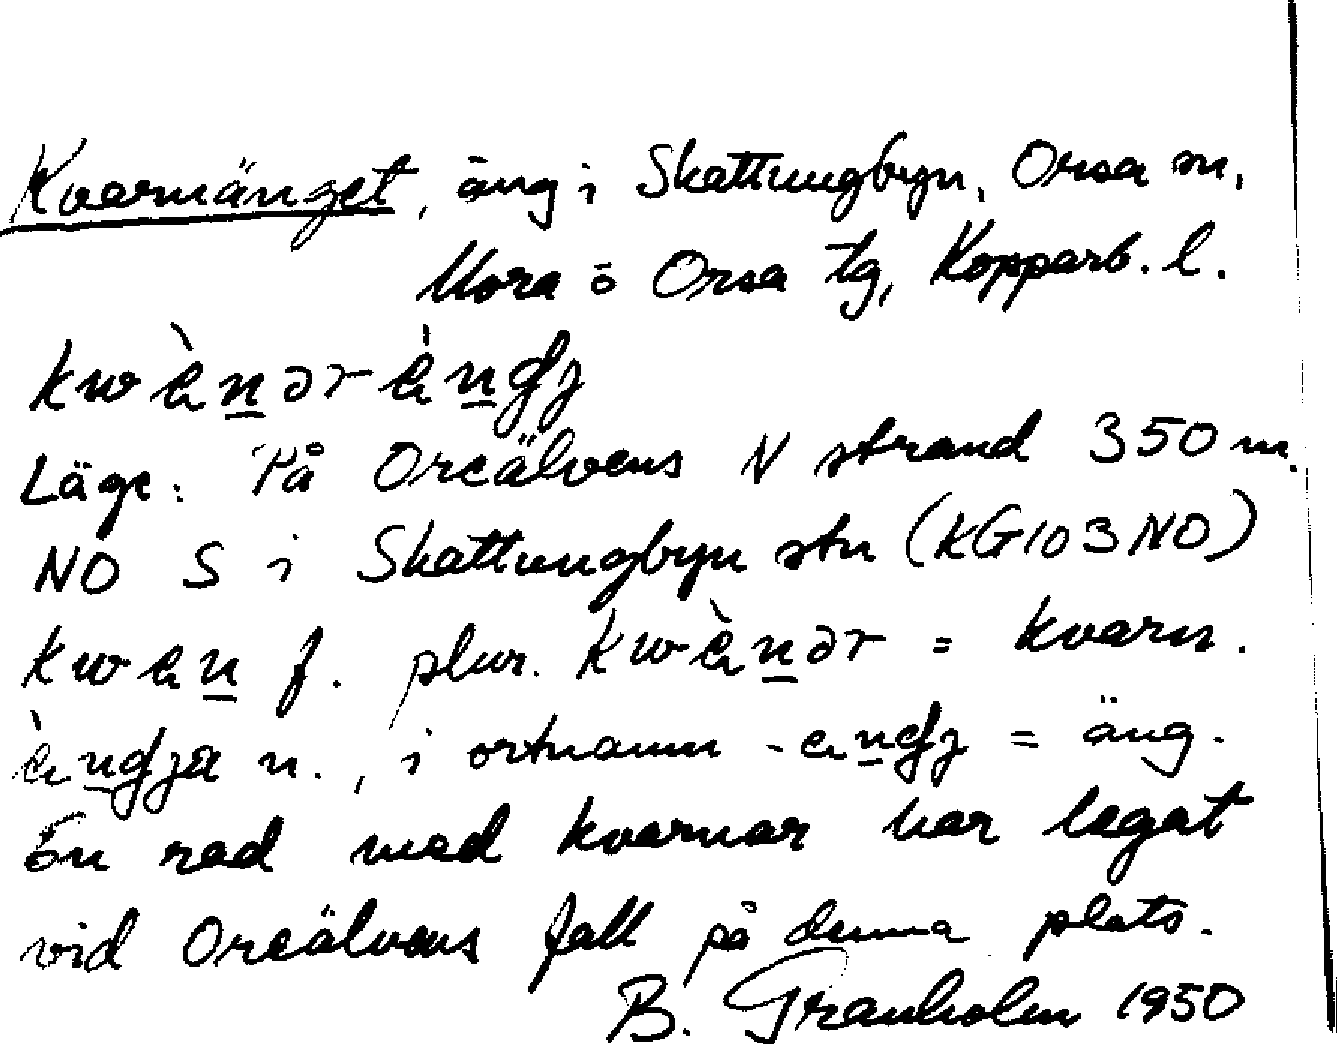 Kvarnänget, äng i Skattungbyn, Orsa sn,
Mora o Orsa tg, Kopparb. l.
kwæ̀n̲ər æ̀n̲gʒ
Läge: På Oreälvens N strand 350 m.
NO S i Skattungbyn stn (KG103NO)
kwæn̲ f. plur. kwæ̀n̲ər = kvarn.
æ̀n̲gʒa n., i ortnamn -æn̲gʒ = äng.
En rad med kvarnar har legat
vid Oreälvens fall på denna plats.
B. Granholm 1950